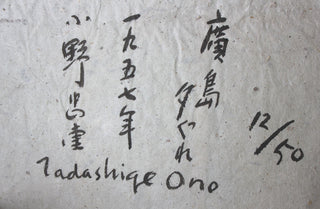 12/50
廣島
夕ぐれ
一九五七年
小野忠重
Tadashige Ono